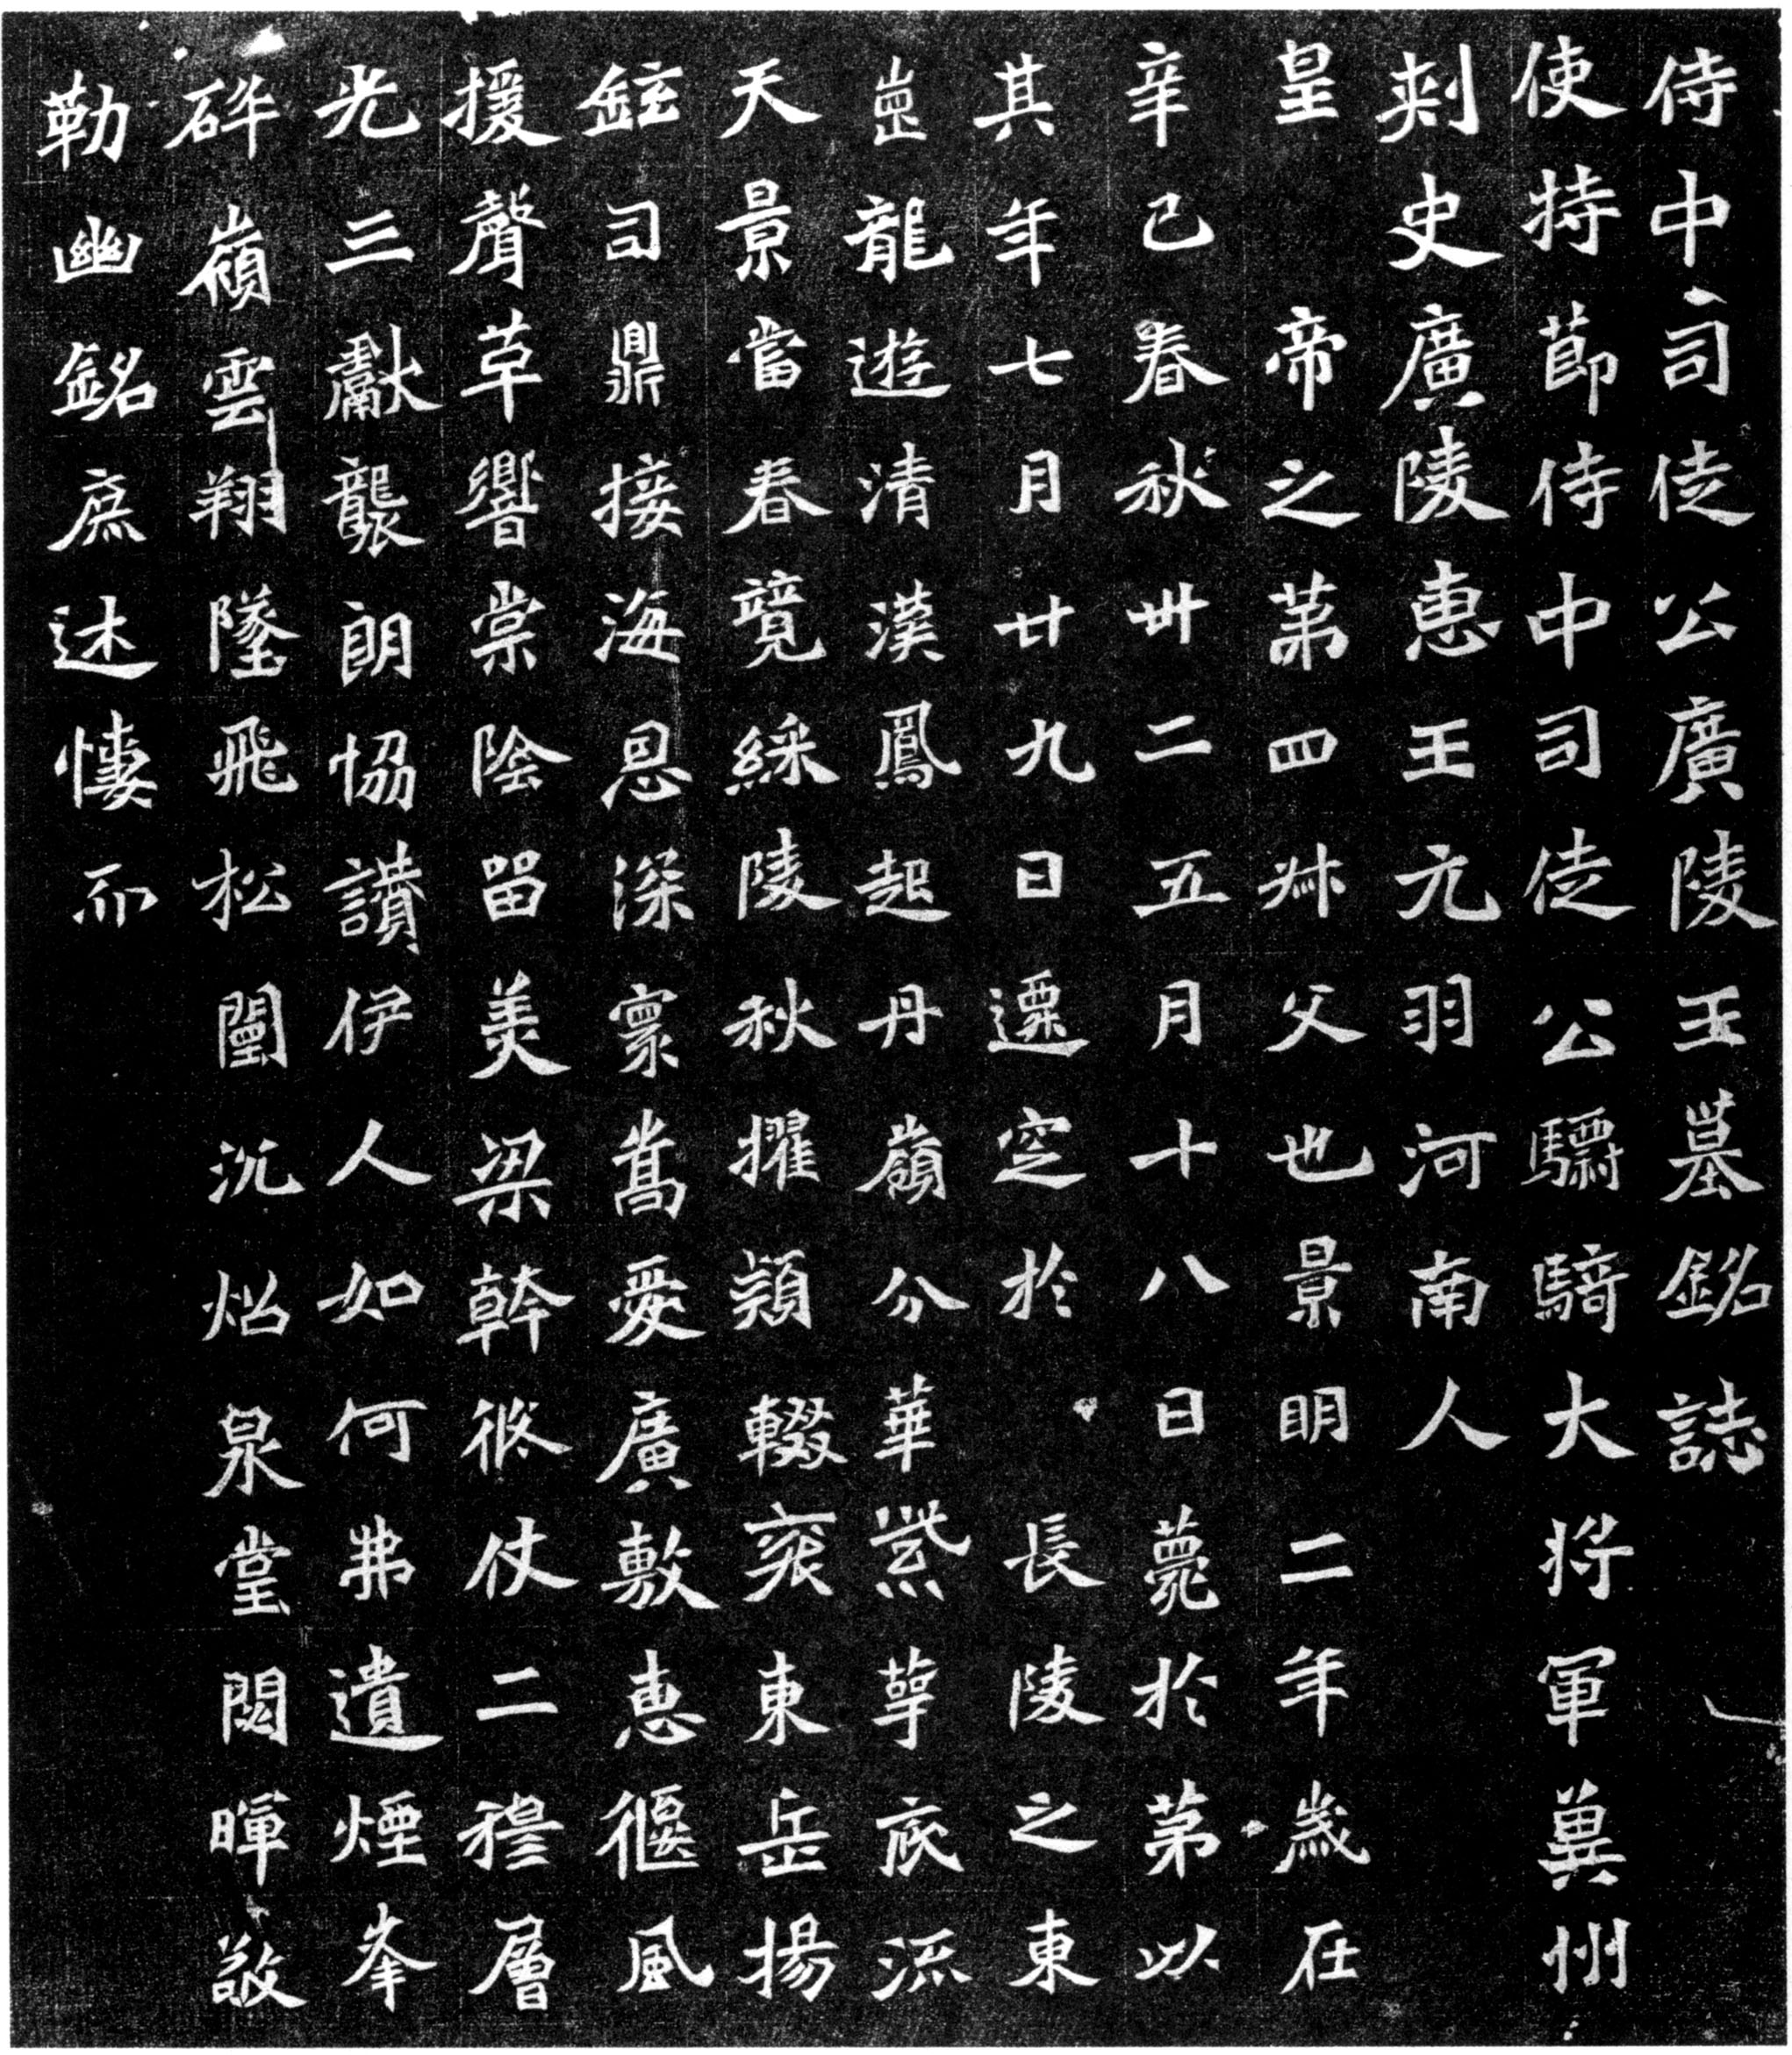 侍中司徒公廣陵王墓銘誌
使持節侍中司徒公驃騎大將軍冀州
刺史廣陵惠王元羽河南人
皇帝之第四叔父也景明二年歲在
辛巳春秋卅二五月十八日薨於第以
其年七月廿九日遷窆於長陵之東
崗龍遊清漢鳳起丹嶺分華紫萼底流
天景當春競綵陵秋擢穎輟袞東岳揚
鉉司鼎接海恩深寰嵩愛廣敷惠偃風
援聲草響棠陰留美梁幹後仗二穆層
光三獻襲朗協讚伊人如何弗遺煙峯
碎嶺雲翔墜飛松闈沉炤泉堂閟暉敬
勒幽銘庶述悽而